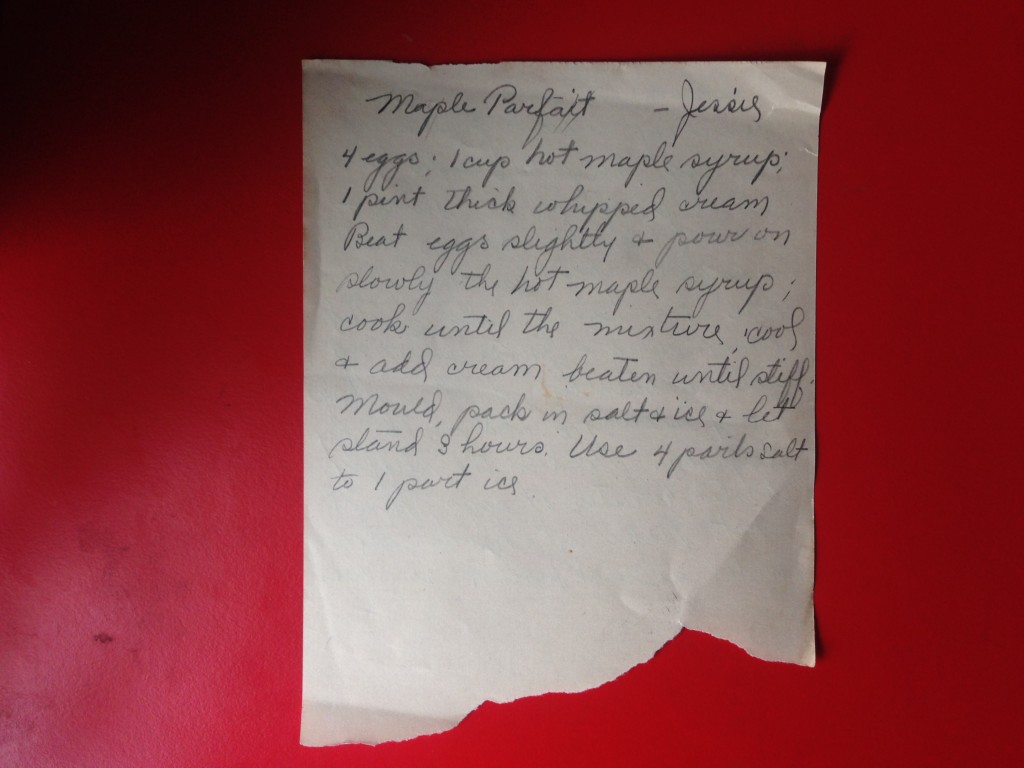 Maple Parfait - Jessie
4 eggs; 1 cup hot maple syrup;
1 pint thick whipped cream
Beat eggs slightly & pour on
slowly the hot maple syrup;
cook until the mixture, cool
& add cream beaten until stiff.
Mould, pack in salt & ice & let
stand 3 hours. Use 4 parts salt
to 1 part ice